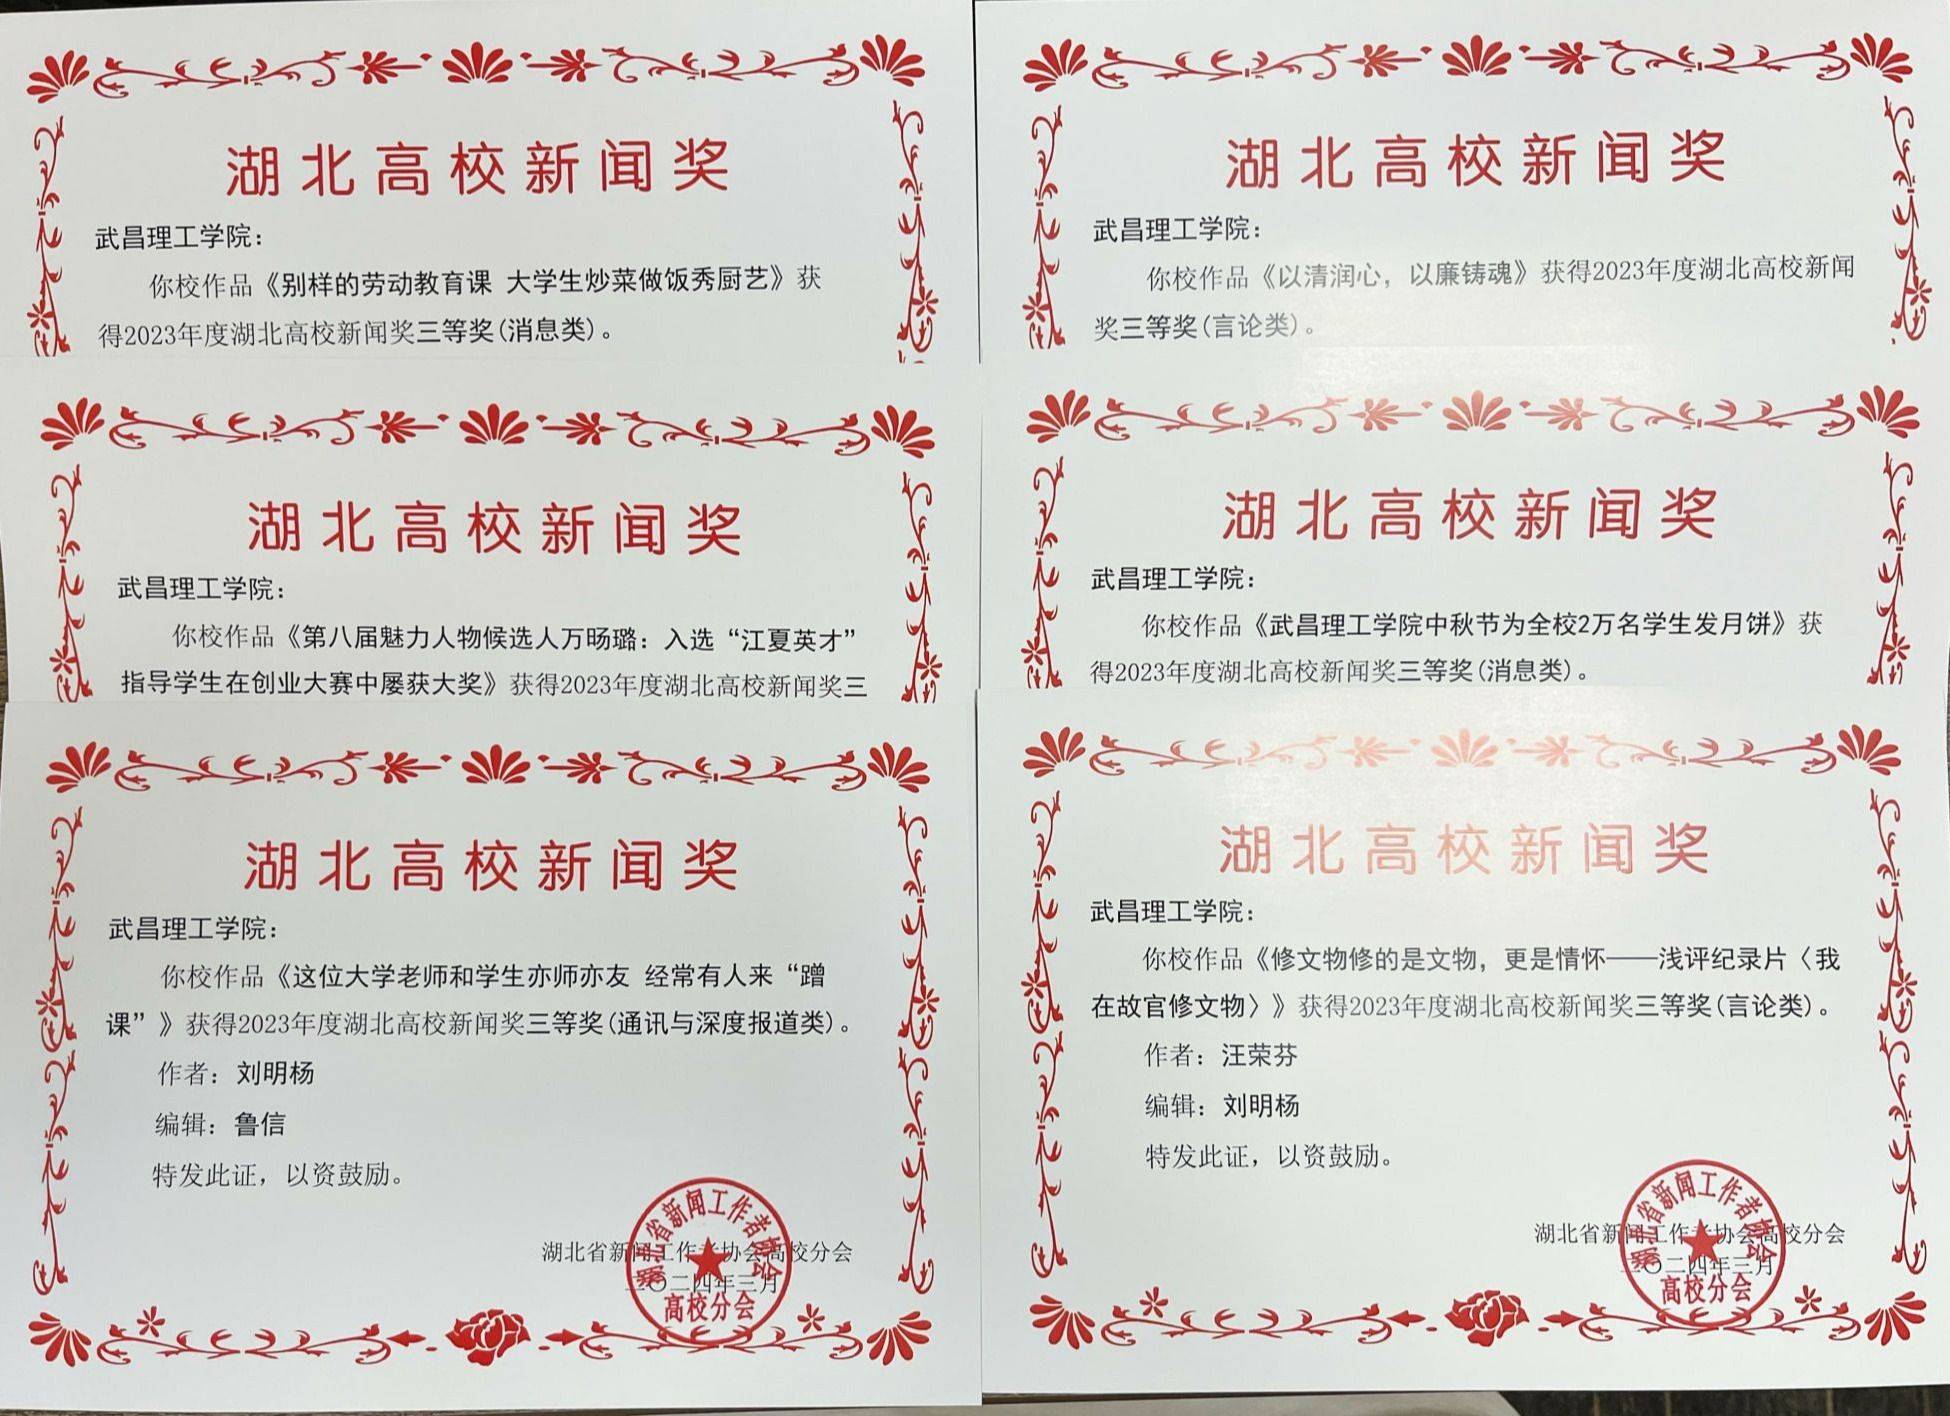 湖北高校新闻奖
武昌理工学院：
你校作品《别样的劳动教育课 大学生炒菜做饭秀厨艺》获
得2023年度湖北高校新闻奖三等奖(消息类)。
湖北高校新闻奖
武昌理工学院：
你校作品《第八届魅力人物候选人万旸璐：入选“江夏英才”
指导学生在创业大赛中屡获大奖》获得2023年度湖北高校新闻奖三
湖北高校新闻奖
武昌理工学院：
你校作品《这位大学老师和学生亦师亦友 经常有人来“蹭
课”》获得2023年度湖北高校新闻奖三等奖(通讯与深度报道类)。
作者：刘明杨
编辑：鲁信
特发此证，以资鼓励。
湖北省新闻工作者协会高校分会
二〇二四年三月
湖北省新闻工作者协会
高校分会
湖北高校新闻奖
武昌理工学院：
你校作品《以清润心，以廉铸魂》获得2023年度湖北高校新闻
奖三等奖(言论类)。
湖北高校新闻奖
武昌理工学院：
你校作品《武昌理工学院中秋节为全校2万名学生发月饼》获
得2023年度湖北高校新闻奖三等奖(消息类)。
湖北高校新闻奖
武昌理工学院：
你校作品《修文物修的是文物，更是情怀——浅评纪录片〈我
在故宫修文物〉》获得2023年度湖北高校新闻奖三等奖(言论类)。
作者：汪荣芬
编辑：刘明杨
特发此证，以资鼓励。
湖北省新闻工作者协会高校分会
二〇二四年三月
湖北省新闻工作者协会
高校分会